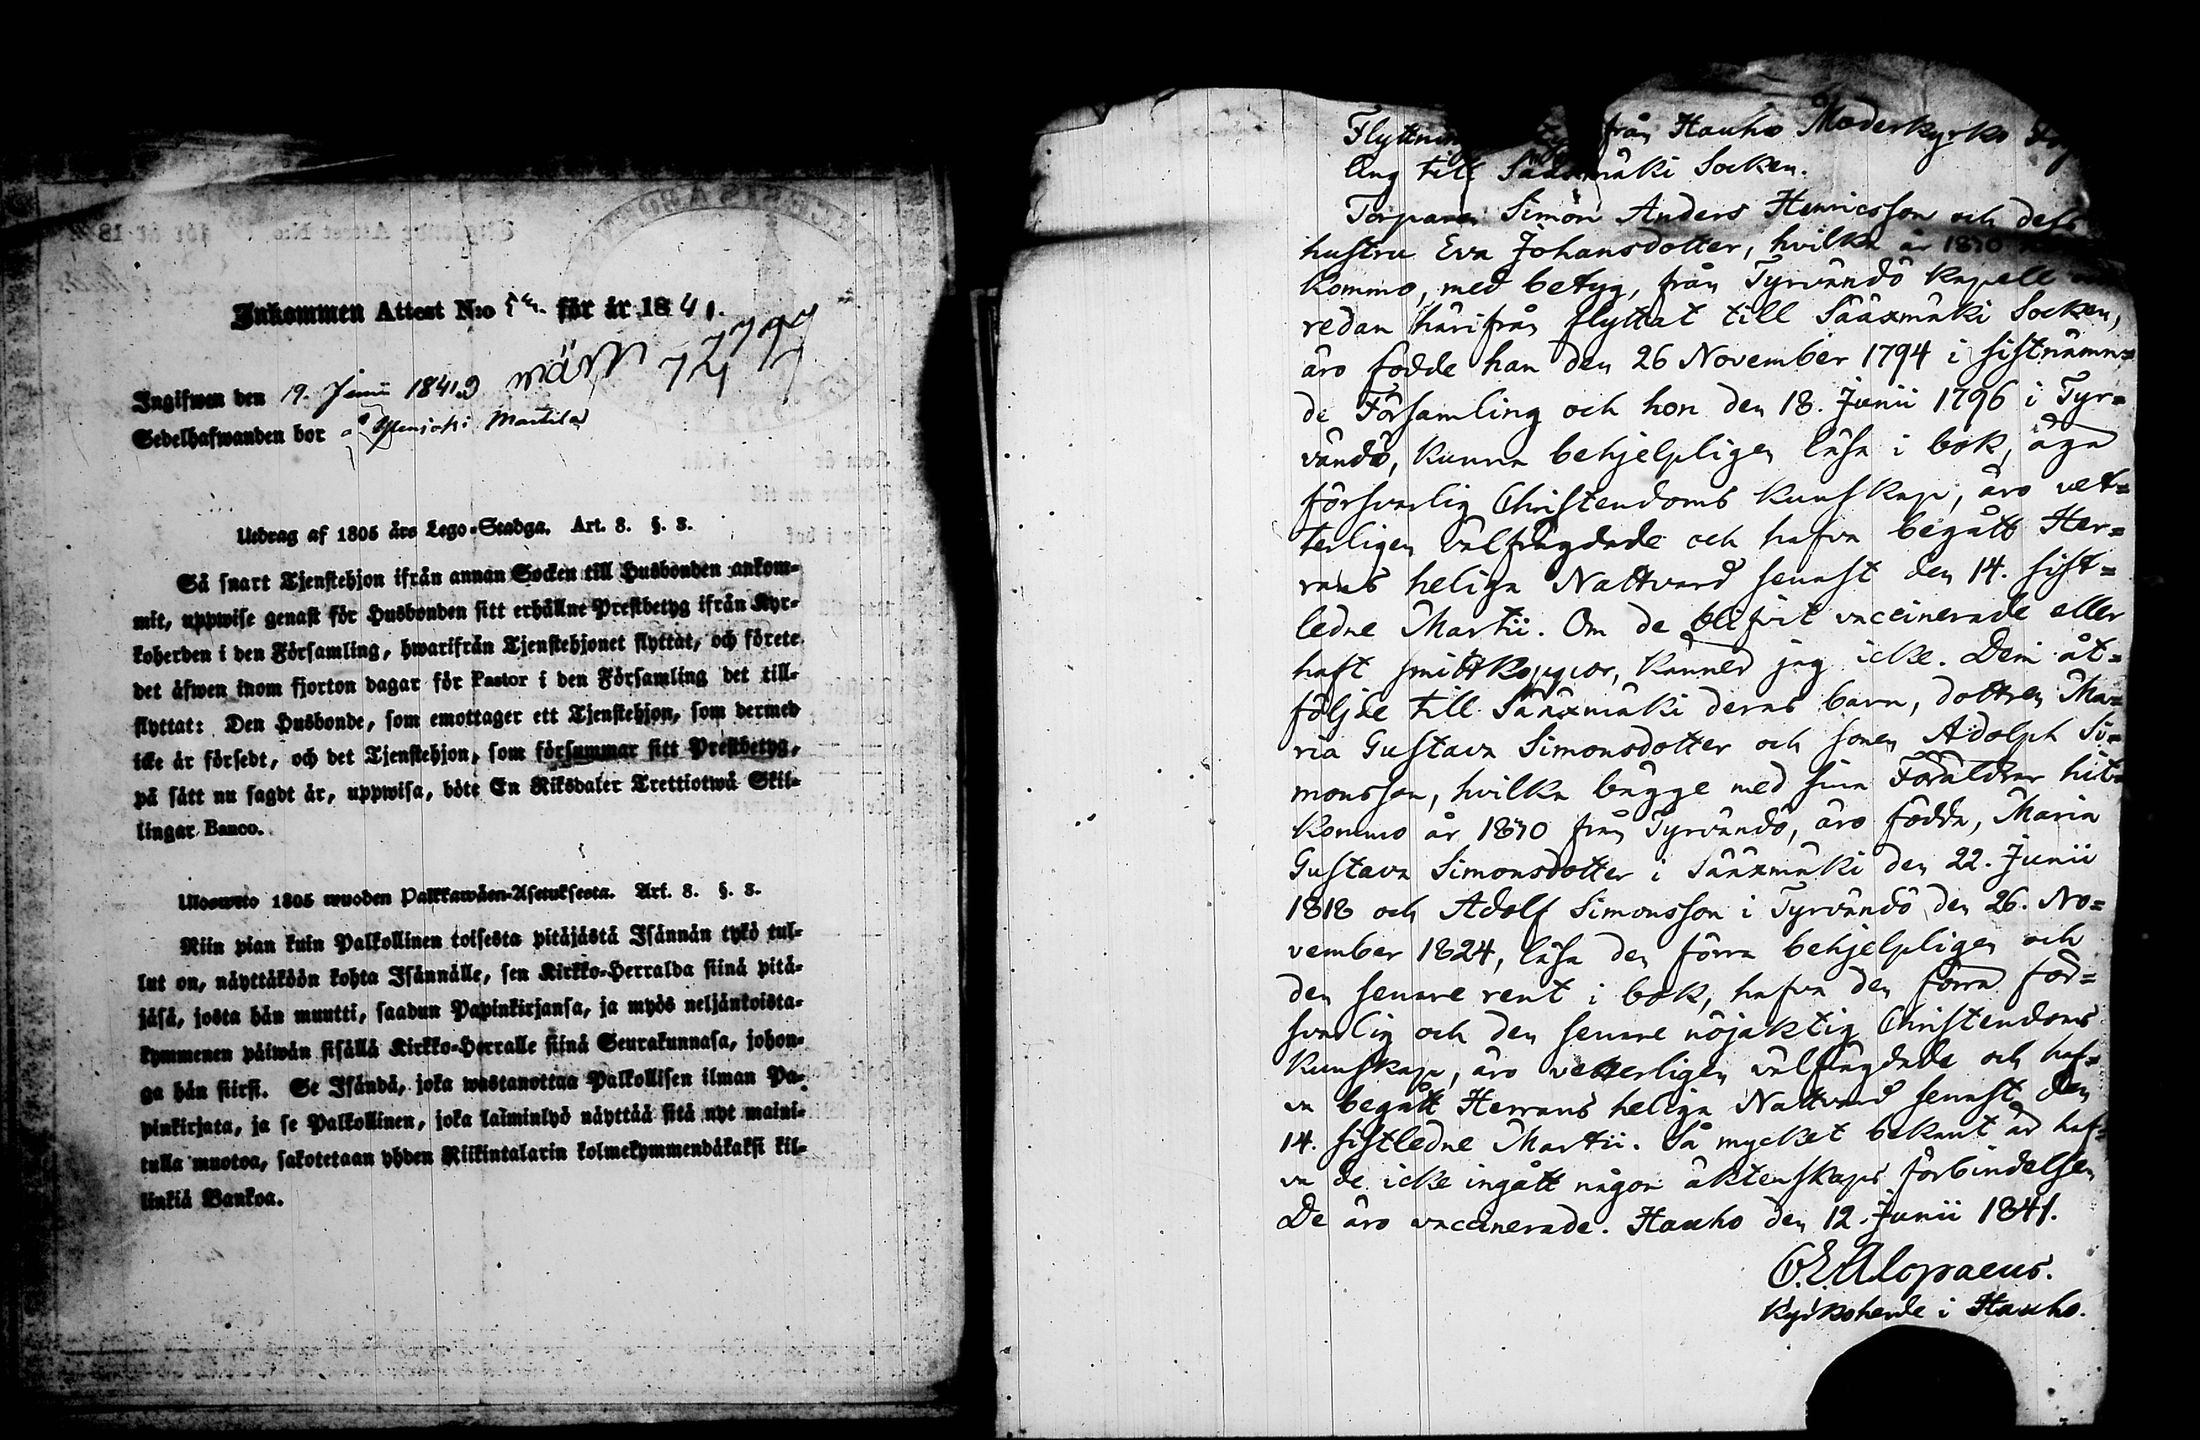 Inkommen Attest N:o för år 1841.
Ingifwen den 19. Junii 1841.
Sedelhafwanden bor å Mantila
Utdrag af 1805 års Lego-Stadga. Art. 8. §. 8.
Så snart Tjenstehjon ifrån annan Socken till Husbonden ankom-
mit, uppwise genast för Husbonden sitt erhållne Prestbetyg ifrån Kyr-
koherden i den Församling, hwarifrån Tjenstehjonet flyttat, och förete
det äfwen inom fjorton dagar för Pastor i den Församling det till-
flyttat: Den Husbonde, som emottager ett Tjenstehjon, som dermed
icke är försedt, och det Tjenstehjon, som försummar sitt Prestbetyg,
på sätt nu sagdt är, uppwisa, böte En Riksdaler Trettiotwå Skil-
lingar Banco.
Ulosweto 1805 wuoden Palkkawäen-Asetuksesta. Art. 8. §. 8.
Niin pian kuin Palkollinen toisesta pitäjästä Isännän tykö tul-
lut on, näyttäköön kohta Isännälle, sen Kirkko-Herralda siinä pitä-
jäsä, josta hän muutti, saadun Papinkirjansa, ja myös neljänkoista-
kymmenen päiwän sisällä Kirkko-Herralle siinä Seurakunnasa, johon-
ga hän siirsi. Se Isändä, joka wastanottaa Palkollisen ilman Pa-
pinkirjata, ja se Palkollinen, joka laiminlyö näyttää sitä nyt maini-
tulla muotoa, sakotetaan yhden Riikintalarin kolmekymmendäkaksi kil-
linkiä Bankoa.
från Hauho Moderkyrko
ling till Sääxmäki Socken.
Torparen Simon Anders Henricsson och dess
hustru Eva Johansdotter, hvilka år 1830
kommo, med betyg, från Tyrvändö kapell
redan härifrån flyttat till Sääxmäki Socken,
äro födde han den 26 November 1794 i sistnämn=
de Församling och hon den 18. Junii 1796 i Tyr=
vändö, kunna behjelpligen läsa i bok, äga
försvarlig Christendoms kunskap, äro vet=
terligen välfrägdade och hafva begått Her=
rans heliga Nattvard senast den 14. sist=
ledne Martii. Om de blifvit vaccinerade eller
haft smittkoppor, känner jag icke. Dem åt=
följde till Sääxmäki deras barn, dottren Ma=
ria Gustava Simonsdotter och sonen Adolph Si=
monsson, hvilka bägge med sina Föräldrar hit
kommo år 1830 från Tyrvändö, äro födda, Maria
Gustava Simonsdotter i Sääxmäki den 22. Junii
1818 och Adolf Simonsson i Tyrvändö den 26. No=
vember 1824, läsa den förra behjelpligen och
den senare rent i bok, hafva den förra för=
svarlig och den senare nöjaktig Christendoms
kunskap, äro vetterligen välfrägdade och haf=
va begått Herrans heliga Nattvard senast den
14. sistledne Martii. Så mycket bekant är haf=
va de icke ingått någon äktenskaps förbindelse
De äro vaccinerade. Hauho den 12. Junii 1841.
Alopaeus.
Kyrkoherde i Hauho.